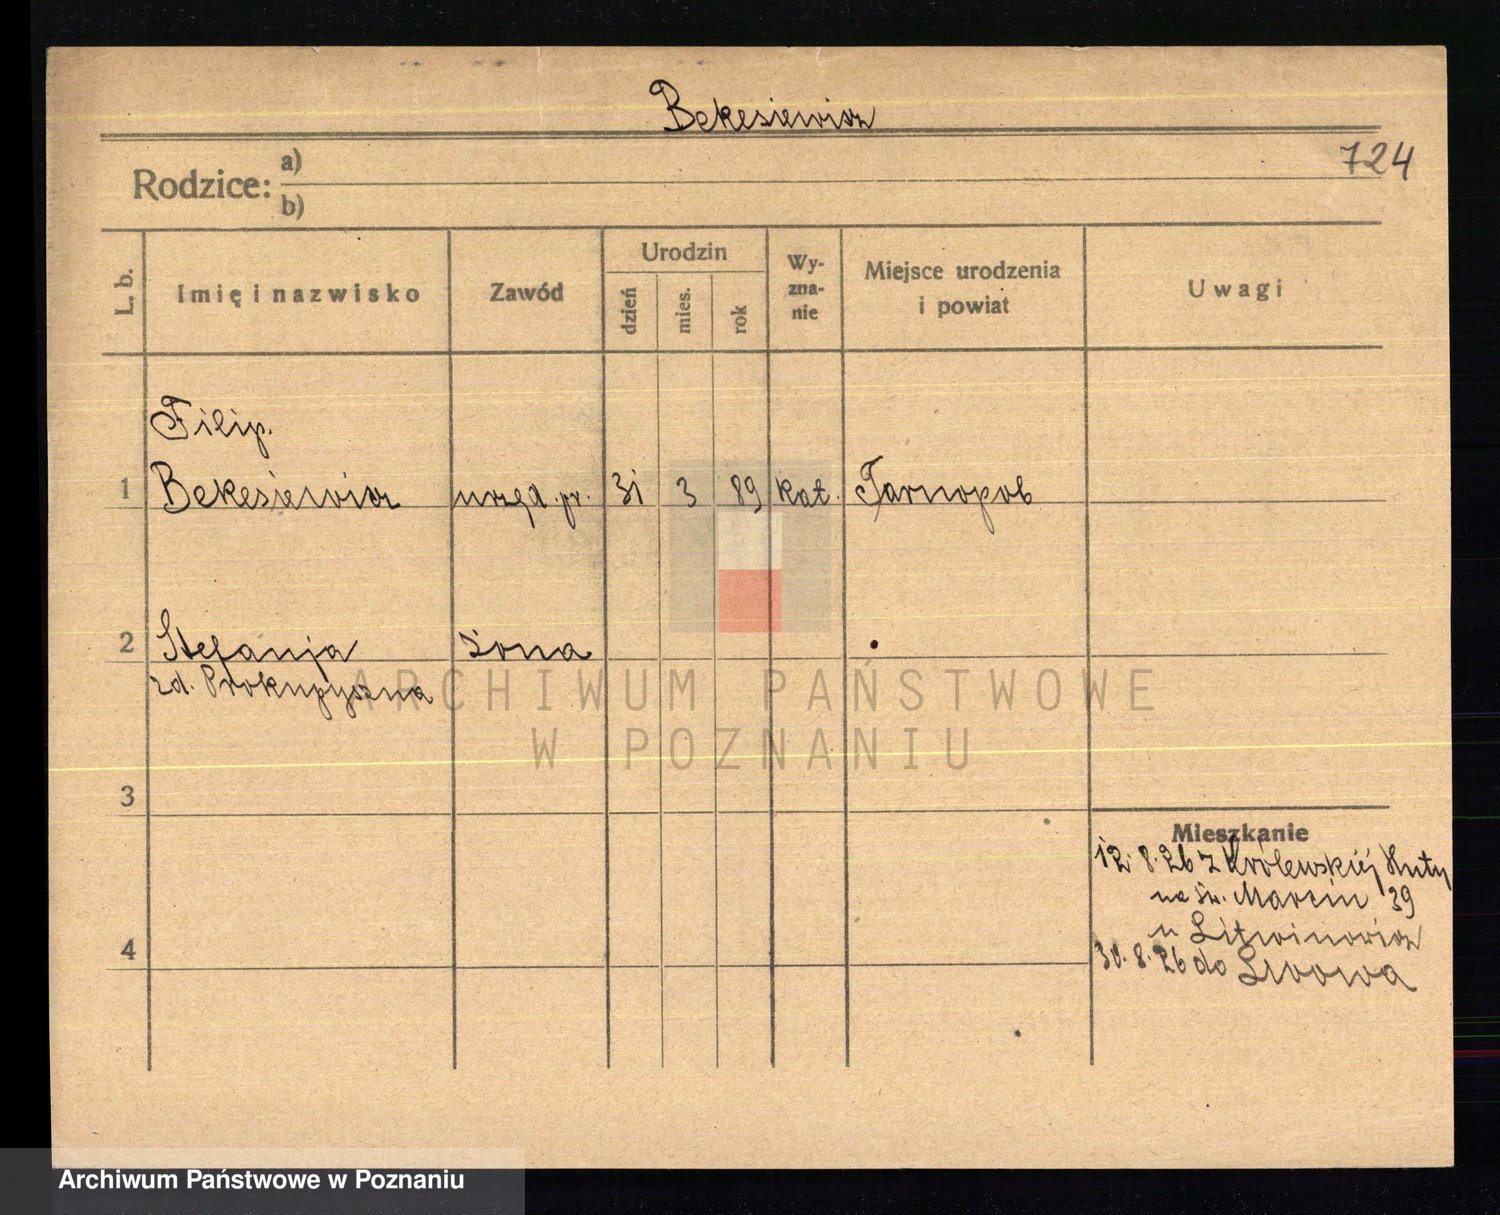 Bekesiewicz
724
Rodzice: a)
b)
L. b.
Imię i nazwisko
Zawód
Urodzin
dzień
mies.
rok
Wy-
zna-
nie
Miejsce urodzenia
i powiat
Uwagi
Filip.
1 Bekesiewicz urzęd. pr. 31 3 89 kat. Tarnopol
2 Stefanja żona
zd. Prokupyszna
ARCHIWUM PAŃSTWOWE
W POZNANIU
3
Mieszkanie
12. 8. 26 z Królewskiej Huty
na św. Marcin 39
u Litwinowicz
4
30. 8. 26 do Lwowa
Archiwum Państwowe w Poznaniu